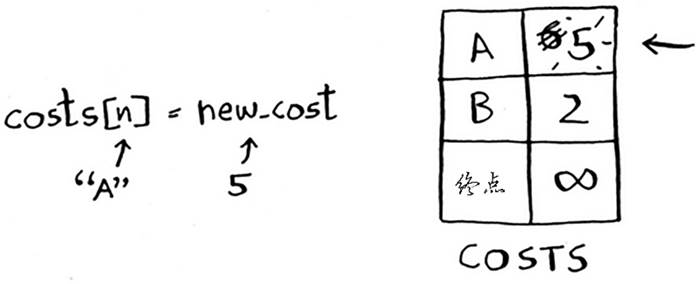 costs[n] = new_cost
“A” 5
A 5
B 2
终点 ∞
COSTS